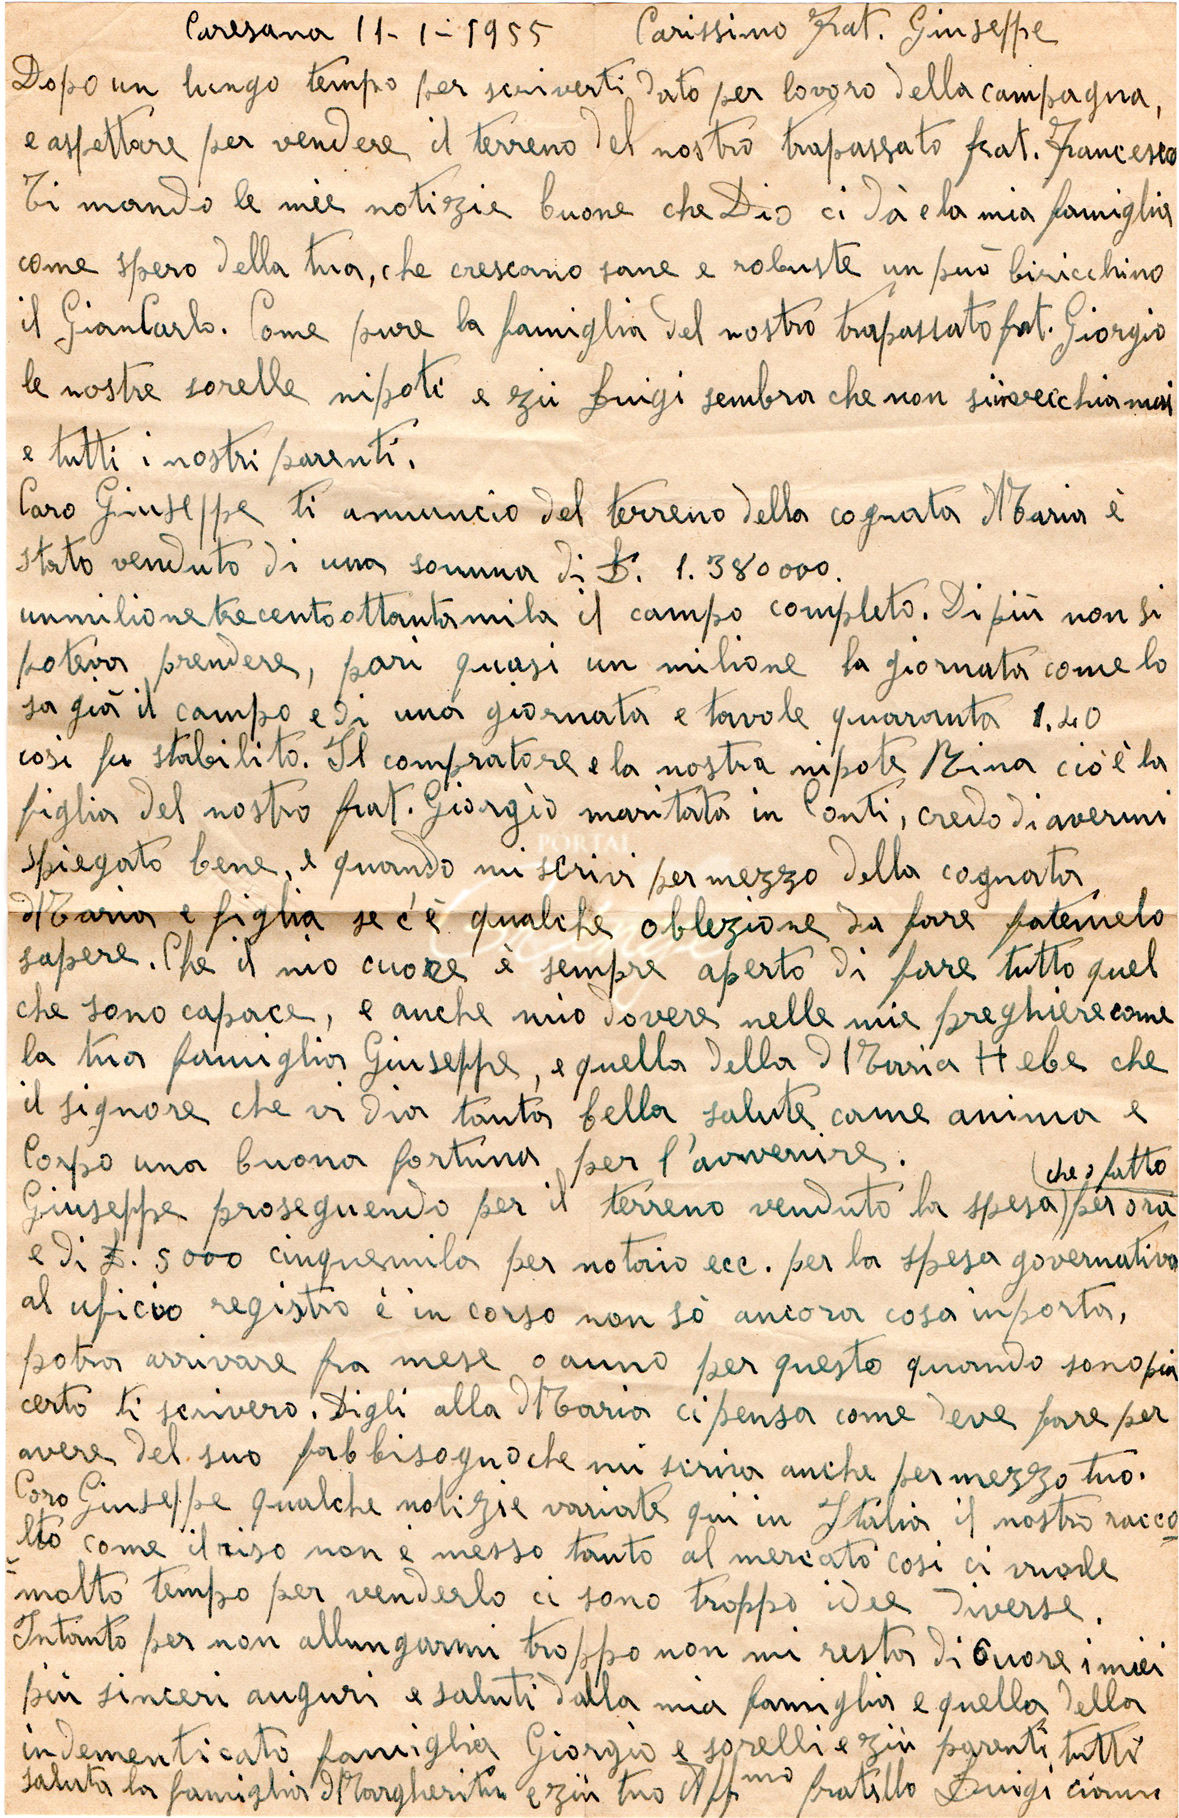 Caresana 11-1-1955 Carissimo Frat. Giuseppe
Dopo un lungo tempo per scriverti dato per lovoro della campagna,
e aspettare per vendere il terreno del nostro trapassato frat. Francesco
Ti mando le mie notizie buone che Dio ci dà e la mia famiglia
come spero della tua, che crescano sane e robuste un può biricchino
il GianCarlo. Come pure la famiglia del nostro trapassato frat. Giorgio
le nostre sorelle nipoti e zii Luigi sembra che non si invecchia mai
e tutti i nostri parenti.
Caro Giuseppe ti annuncio del terreno della cognata Maria è
stato venduto di una somma di £. 1.380000.
unmilionetrecentoottantamila il campo completo. Di più non si
poteva prendere, pari quasi un milione la giornata come lo
sa già il campo e di una giornata e tavole quaranta 1.40
cosi fu stabilito. Il compratore e la nostra nipote Rina cio'è la
figlia del nostro frat. Giorgio maritata in Conti, credo di avermi
spiegato bene, e quando mi scrivi per mezzo della cognata
Maria e figlia se c'è qualche oblezione da fare fatemelo
sapere. Che il mio cuore è sempre aperto di fare tutto quel
che sono capace, e anche mio dovere nelle mie preghiere come
la tua famiglia Giuseppe, e quella della Maria Hebe che
il signore che vi dia tanta bella salute come anima e
Corpo una buona fortuna per l'avvenire.
(che o fatto
Giuseppe proseguendo per il terreno venduto la spesa) per ora
e di £. 5000 cinquemila per notaio ecc. per la spesa governativa
al uficio registro è in corso non sò ancora cosa inporta,
potra arrivare fra mese o anno per questo quando sono più
certo ti scrivero. Digli alla Maria ci pensa come deve fare per
avere del suo fabbisogno che mi scriva anche per mezzo tuo.
Caro Giuseppe qualche notizie variate qui in Italia il nostro racco
lto come il riso non è messo tanto al mercato cosi ci vuole
molto tempo per venderlo ci sono troppo idee diverse.
Intanto per non allungarmi troppo non mi resta di Cuore i miei
più sinceri auguri e saluti dalla mia famiglia e quella della
indementicato famiglia Giorgio e sorelli e zii parenti tutti
saluta la famiglia Margherita e zii tuo Aff.mo fratello Luigi